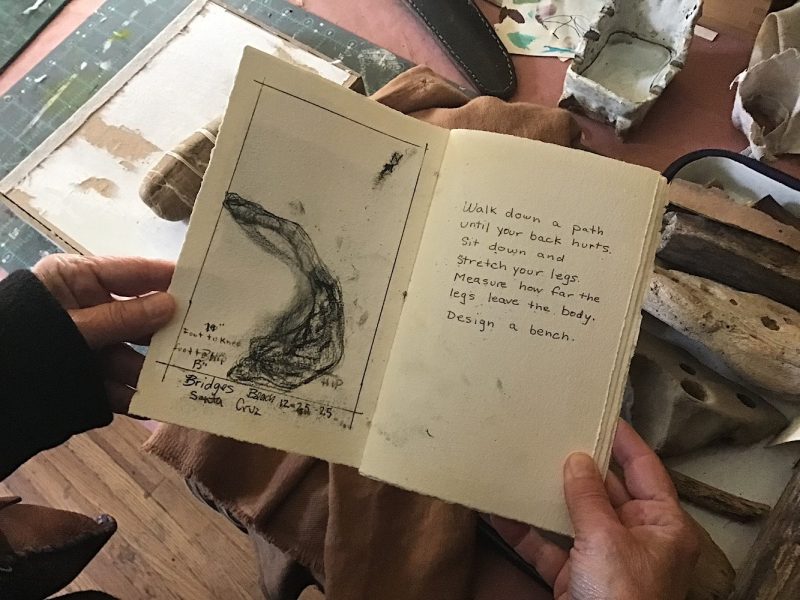 N
14"
Foot to Knee
Foot to Hip
HIP
Bridges Beach 12-25-25
Santa Cruz
Walk down a path
until your back hurts.
Sit down and
Stretch your legs.
Measure how far the
legs leave the body.
Design a bench.